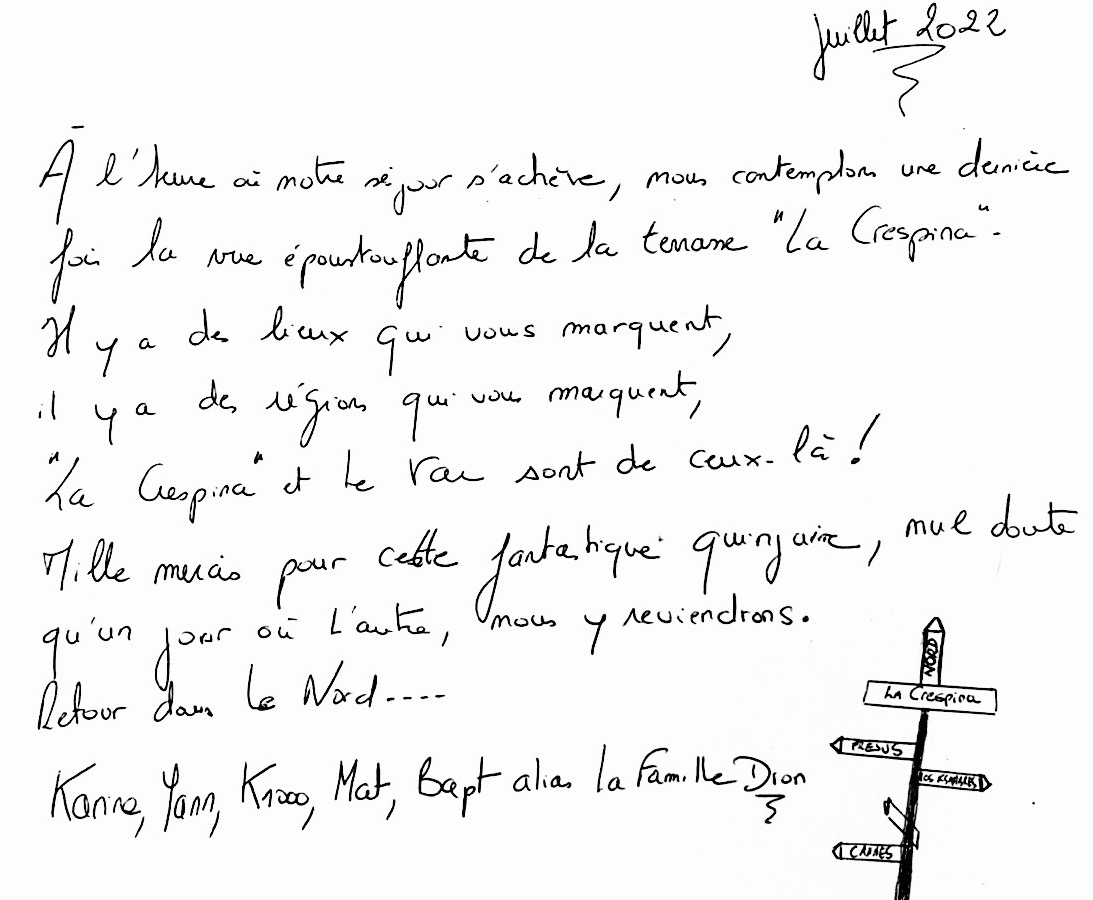 Juillet 2022
À l'heure où notre séjour s'achève, nous contemplons une dernière
fois la vue époustouflante de la terrasse "La Crespina".
Il y a des lieux qui vous marquent,
il y a des régions qui vous marquent,
"La Crespina" et le Var sont de ceux-là !
Mille mercis pour cette fantastique quinzaine, nul doute
qu'un jour où l'autre, nous y reviendrons.
Retour dans le Nord----
Karine, Yann, K1000, Mat, Bapt alias la Famille Dion
NORD
La Crespina
FREJUS
CANNES